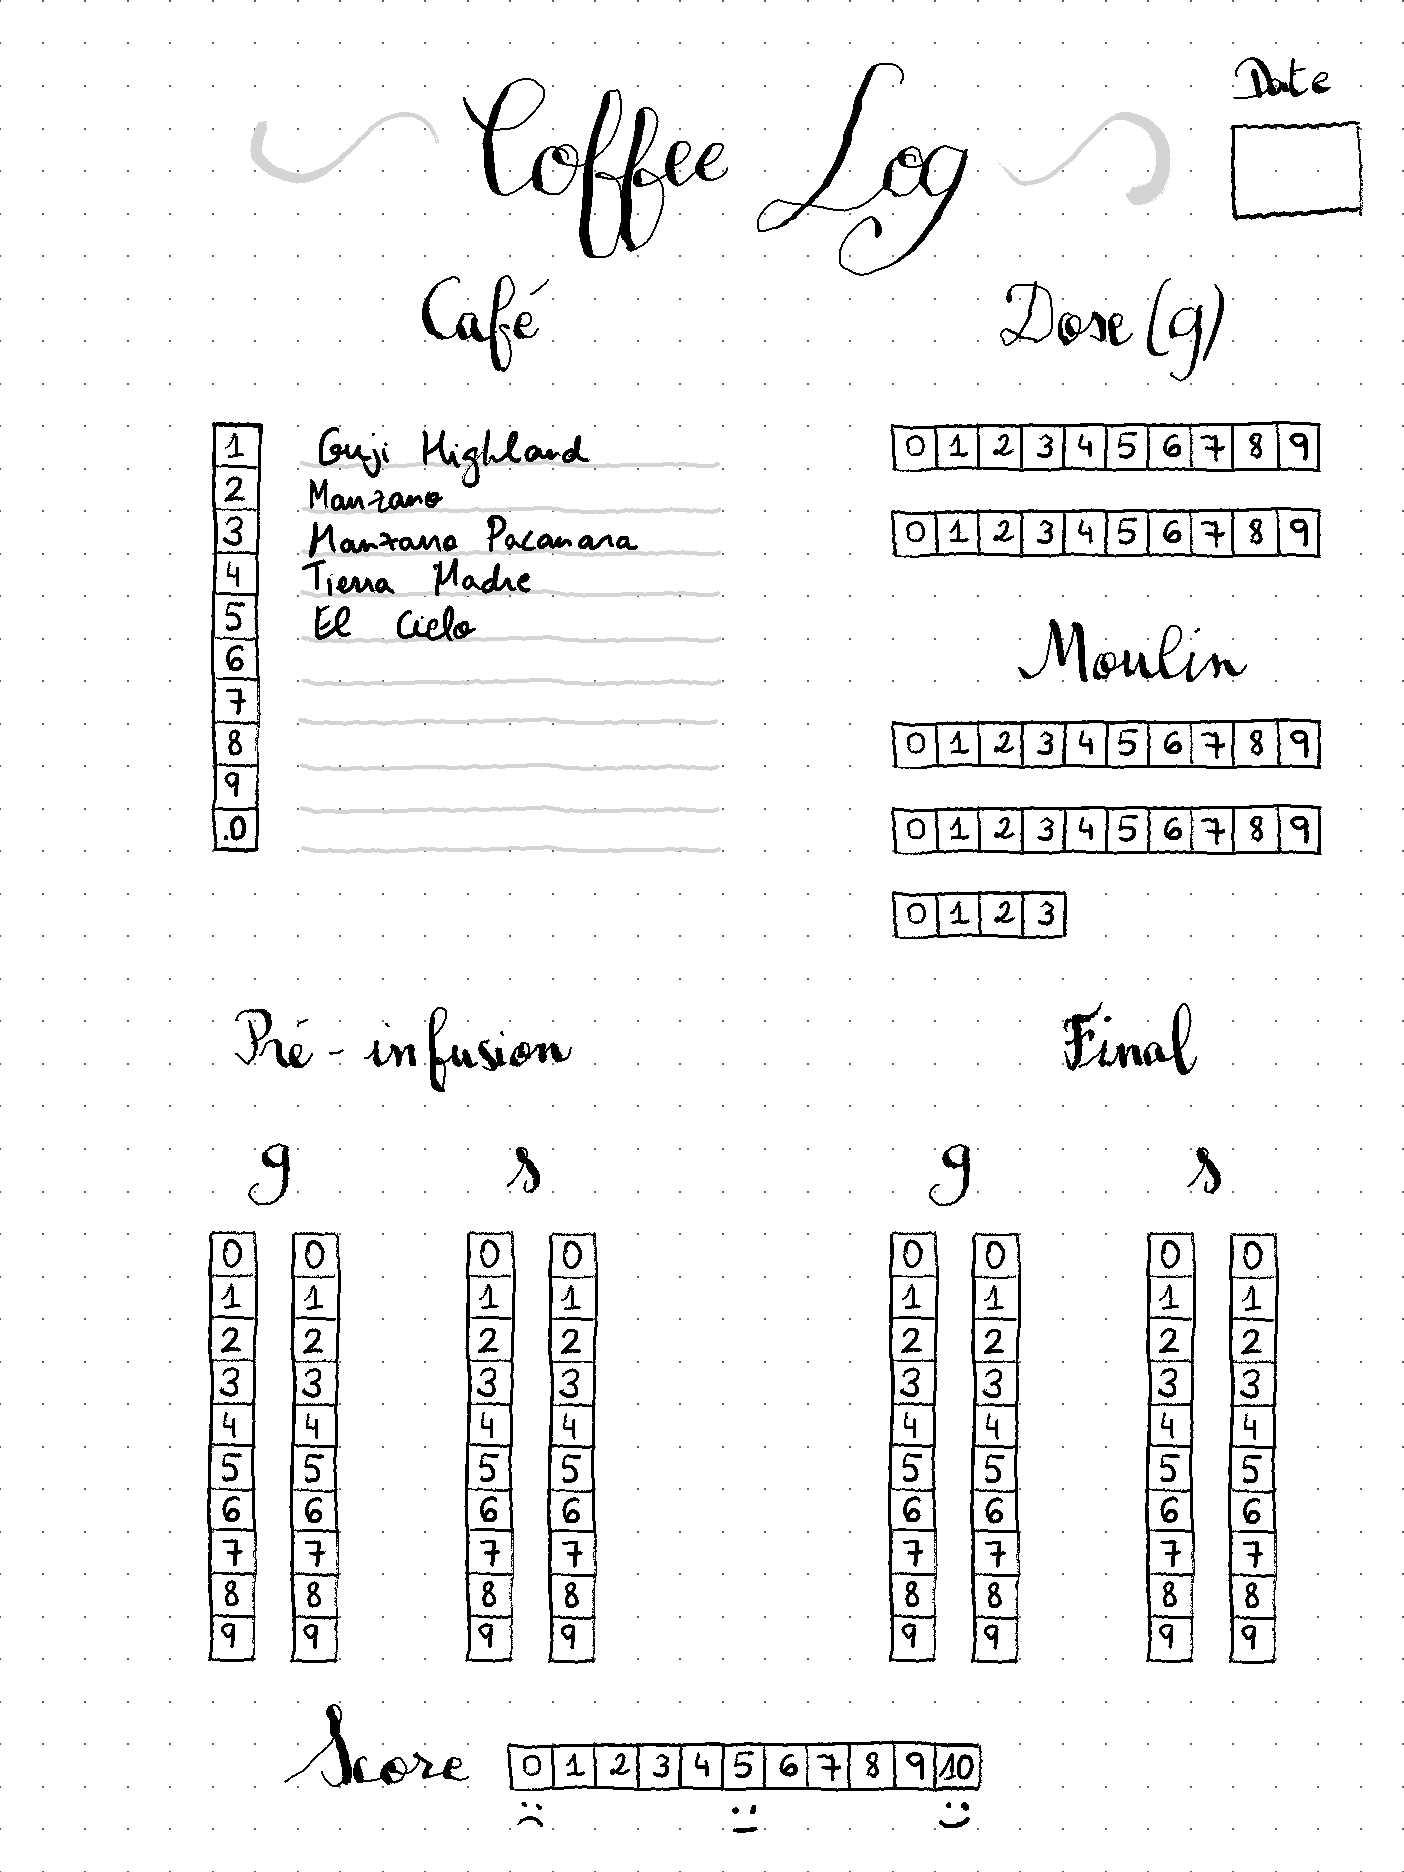 Coffee Log
Date
Café
1 Guji Highland
2 Manzano
3 Manzano Pacamara
4 Tierra Madre
5 El Cielo
6
7
8
9
.0
Dose (g)
0 1 2 3 4 5 6 7 8 9
0 1 2 3 4 5 6 7 8 9
Moulin
0 1 2 3 4 5 6 7 8 9
0 1 2 3 4 5 6 7 8 9
0 1 2 3
Pré-infusion
g s
0 0 0 0
1 1 1 1
2 2 2 2
3 3 3 3
4 4 4 4
5 5 5 5
6 6 6 6
7 7 7 7
8 8 8 8
9 9 9 9
Final
g s
0 0 0 0
1 1 1 1
2 2 2 2
3 3 3 3
4 4 4 4
5 5 5 5
6 6 6 6
7 7 7 7
8 8 8 8
9 9 9 9
Score 0 1 2 3 4 5 6 7 8 9 10